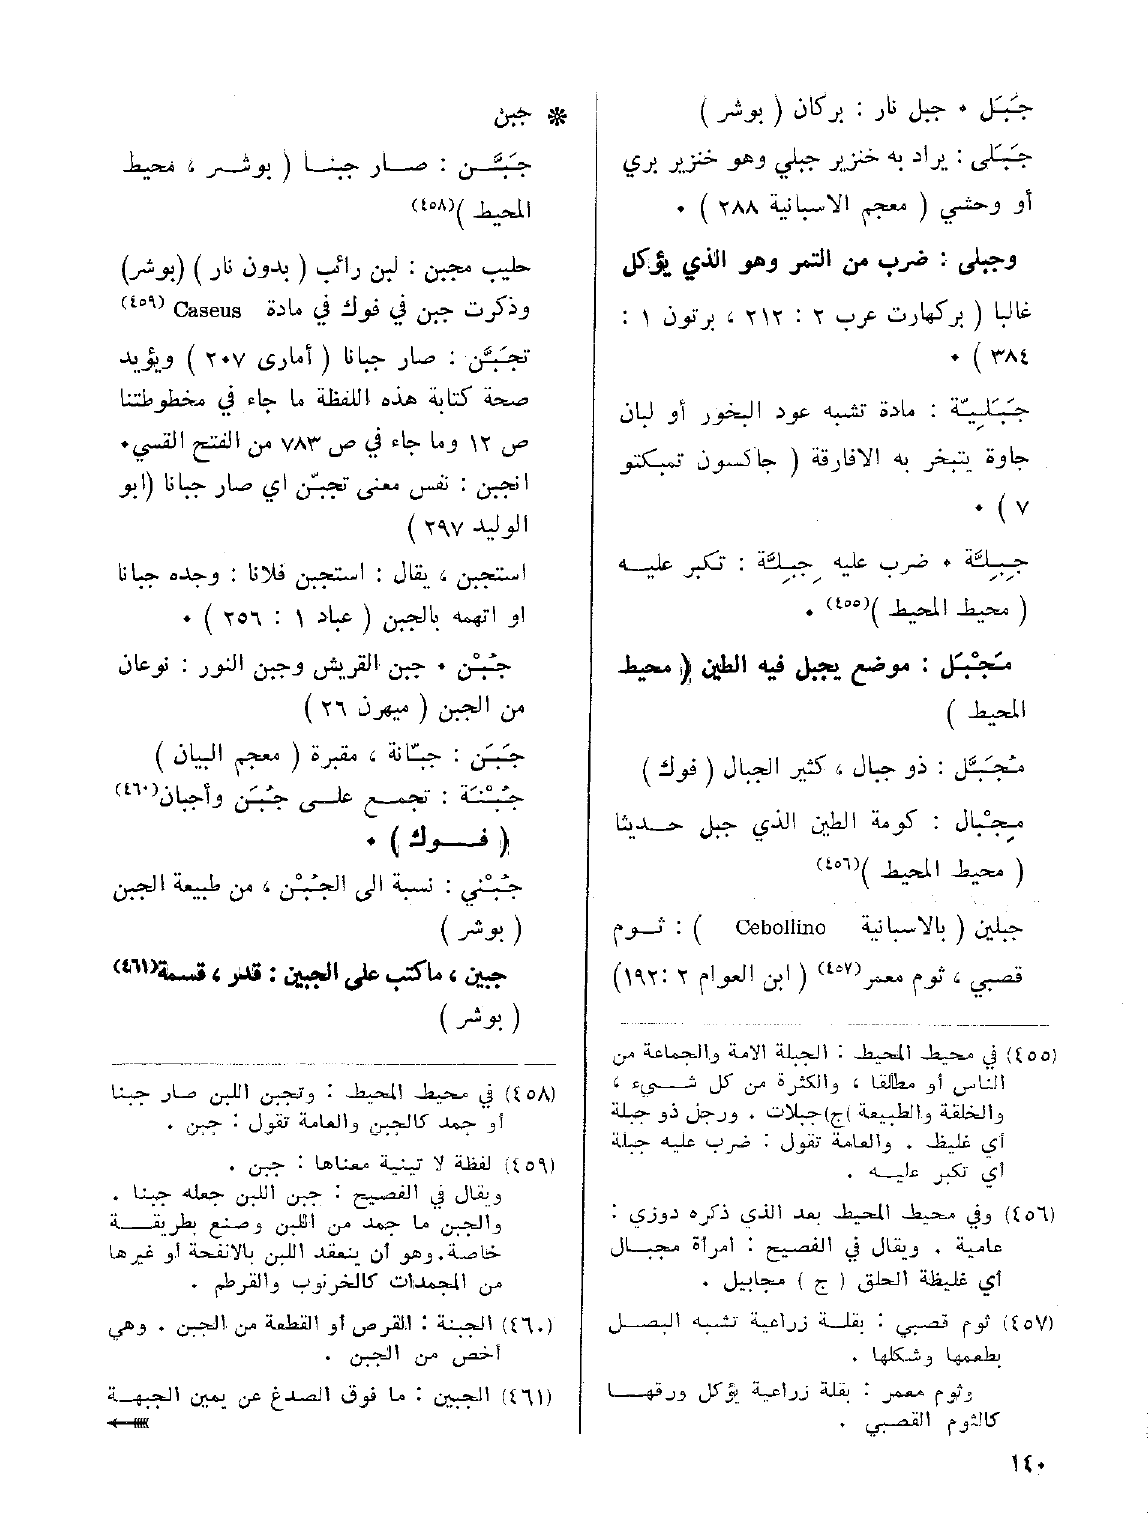 جَبَل ٠ جبل نار : بركان ( بوشر )
جَبَلى : يراد به خنزير جبلي وهو خنزير بري
أو وحشي ( معجم الاسبانية ٢٨٨ ) ٠
وجبلى : ضرب من التمر وهو الذي يؤكل
غالبا ( بركهارت عرب ٢ : ٢١٢ ، برتون ١ :
٣٨٤ ) ٠
جَبَلِيّة : مادة تشبه عود البخور أو لبان
جاوة يتبخر به الافارقة ( جاكسون تمبكتو
٧ ) ٠
جِبِلَّة ٠ ضرب عليه جِبِلَّة : تكبر عليه
( محيط المحيط )(٤٥٥) ٠
مَجْبَل : موضع يجبل فيه الطين ( محيط
المحيط )
مُجَبَّل : ذو جبال ، كثير الجبال ( فوك )
مِجْبال : كومة الطين الذي جبل حديثا
( محيط المحيط )(٤٥٦)
جبلين ( بالاسبانية Cebollino ) : ثوم
قصبي ، ثوم معمر(٤٥٧) ( ابن العوام ٢ :١٩٢)
(٤٥٥) في محيط المحيط : الجبلة الامة والجماعة من
الناس أو مطلقا ، والكثرة من كل شيء ،
والخلقة والطبيعة )ج( جبلات . ورجل ذو جبلة
أي غليظ . والعامة تقول : ضرب عليه جبلة
أي تكبر عليه .
(٤٥٦) وفي محيط المحيط بعد الذي ذكره دوزي :
عامية . ويقال في الفصيح : امرأة مجبال
أي غليظة الخلق ( ج ) مجابيل .
(٤٥٧) ثوم قصبي : بقلة زراعية تشبه البصل
بطعمها وشكلها .
وثوم معمر : بقلة زراعية يؤكل ورقها
كالثوم القصبي .
❋ جبن
جَبَّن : صار جبنا ( بوشر ، محيط
المحيط )(٤٥٨)
حليب مجبن : لبن رائب ( بدون نار ) (بوشر)
وذكرت جبن في فوك في مادة Caseus (٤٥٩)
تجَبَّن : صار جبانا ( أمارى ٢٠٧ ) ويؤيد
صحة كتابة هذه اللفظة ما جاء في مخطوطتنا
ص ١٢ وما جاء في ص ٧٨٣ من الفتح القسي٠
انجبن : نفس معنى تجبّن اي صار جبانا (ابو
الوليد ٢٩٧ )
استجبن ، يقال : استجبن فلانا : وجده جبانا
او اتهمه بالجبن ( عباد ١ : ٢٥٦ ) ٠
جُبْن ٠ جبن القريش وجبن النور : نوعان
من الجبن ( ميهرن ٢٦ )
جَبَن : جبّانة ، مقبرة ( معجم البيان )
جُبْنَة : تجمع على جُبَن وأجبان(٤٦٠)
( فوك ) ٠
جُبْني : نسبة الى الجُبْن ، من طبيعة الجبن
( بوشر )
جبين ، ماكتب على الجبين : قدر ، قسمة(٤٦١)
( بوشر )
(٤٥٨) في محيط المحيط : وتجبن اللبن صار جبنا
أو جمد كالجبن والعامة تقول : جبن .
(٤٥٩) لفظة لا تينية معناها : جبن .
ويقال في الفصيح : جبن اللبن جعله جبنا .
والجبن ما جمد من اللبن وصنع بطريقة
خاصة.وهو أن ينعقد اللبن بالانفحة أو غيرها
من المجمدات كالخرنوب والقرطم .
(٤٦٠) الجبنة : القرص أو القطعة من الجبن . وهي
أخص من الجبن .
(٤٦١) الجبين : ما فوق الصدغ عن يمين الجبهة
١٤٠